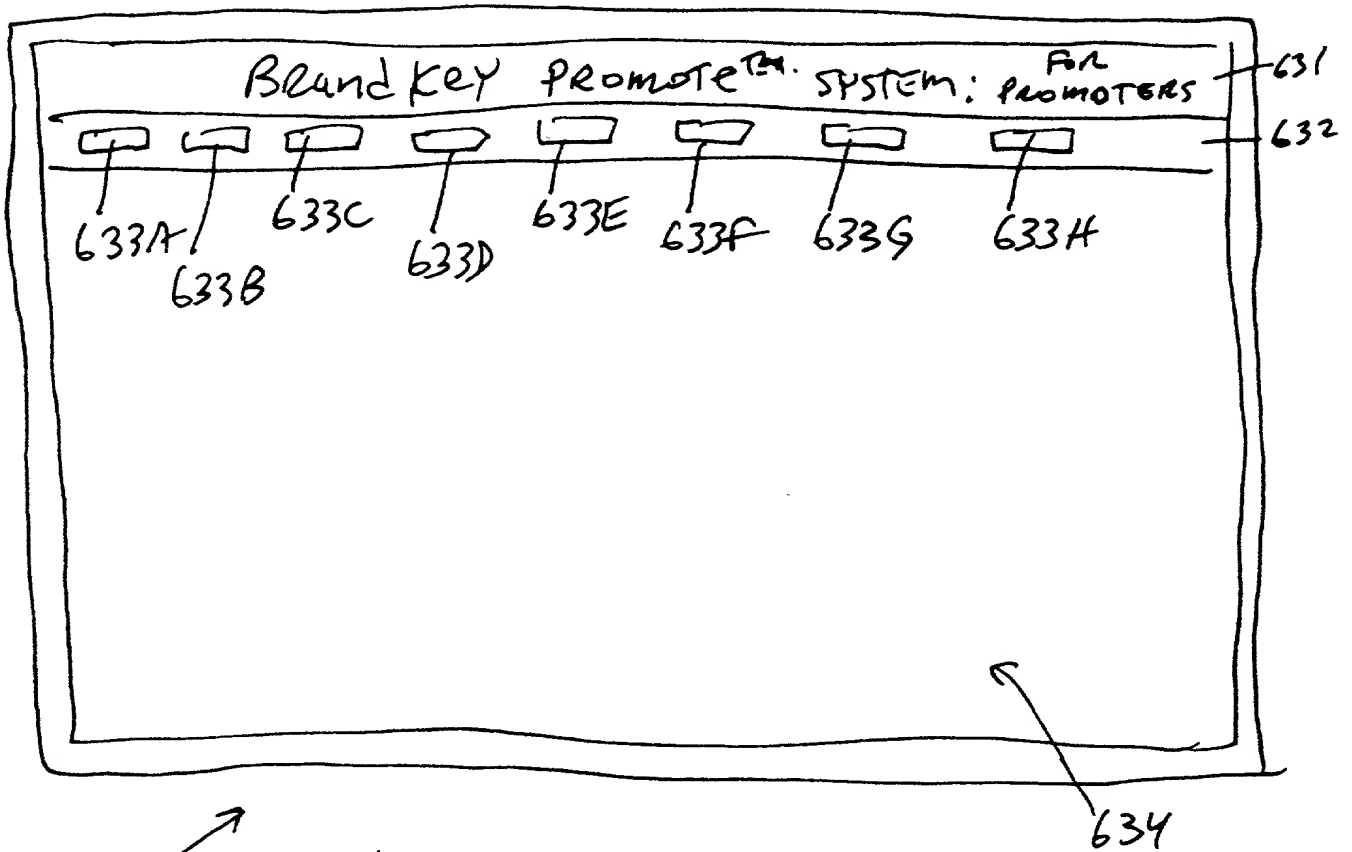 BrandKey Promote™. SYSTEM: FOR PROMOTERS
631
632
633A 633B 633C 633D 633E 633F 633G 633H
634